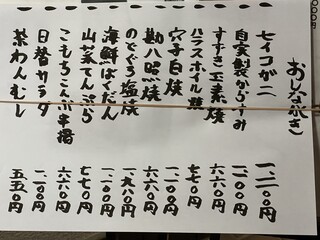 おしながき
セイコがニ 一、二〇〇円
自家製からすみ 一、二〇〇円
すずき玉素焼 六六〇円
ハラスホイル焼 七七〇円
穴子白焼 一、二〇〇円
勘八照焼 六六〇円
のどぐろ塩焼 一、九八〇円
海鮮ばくだん 一、一〇〇円
山菜てんぷら 七七〇円
こもちこんぶ串揚 六六〇円
日替サラダ 一、一〇〇円
茶わんむし 五五〇円